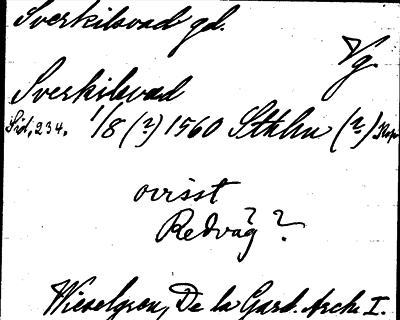 Sverkilsvad gd.
Vg.
Sverkilsvad
Sid. 234. 1/8 (?) 1560 Sthlm (?) Kop
ovisst
Redväg??
Wieselgren, De la Gard. Arch. I.